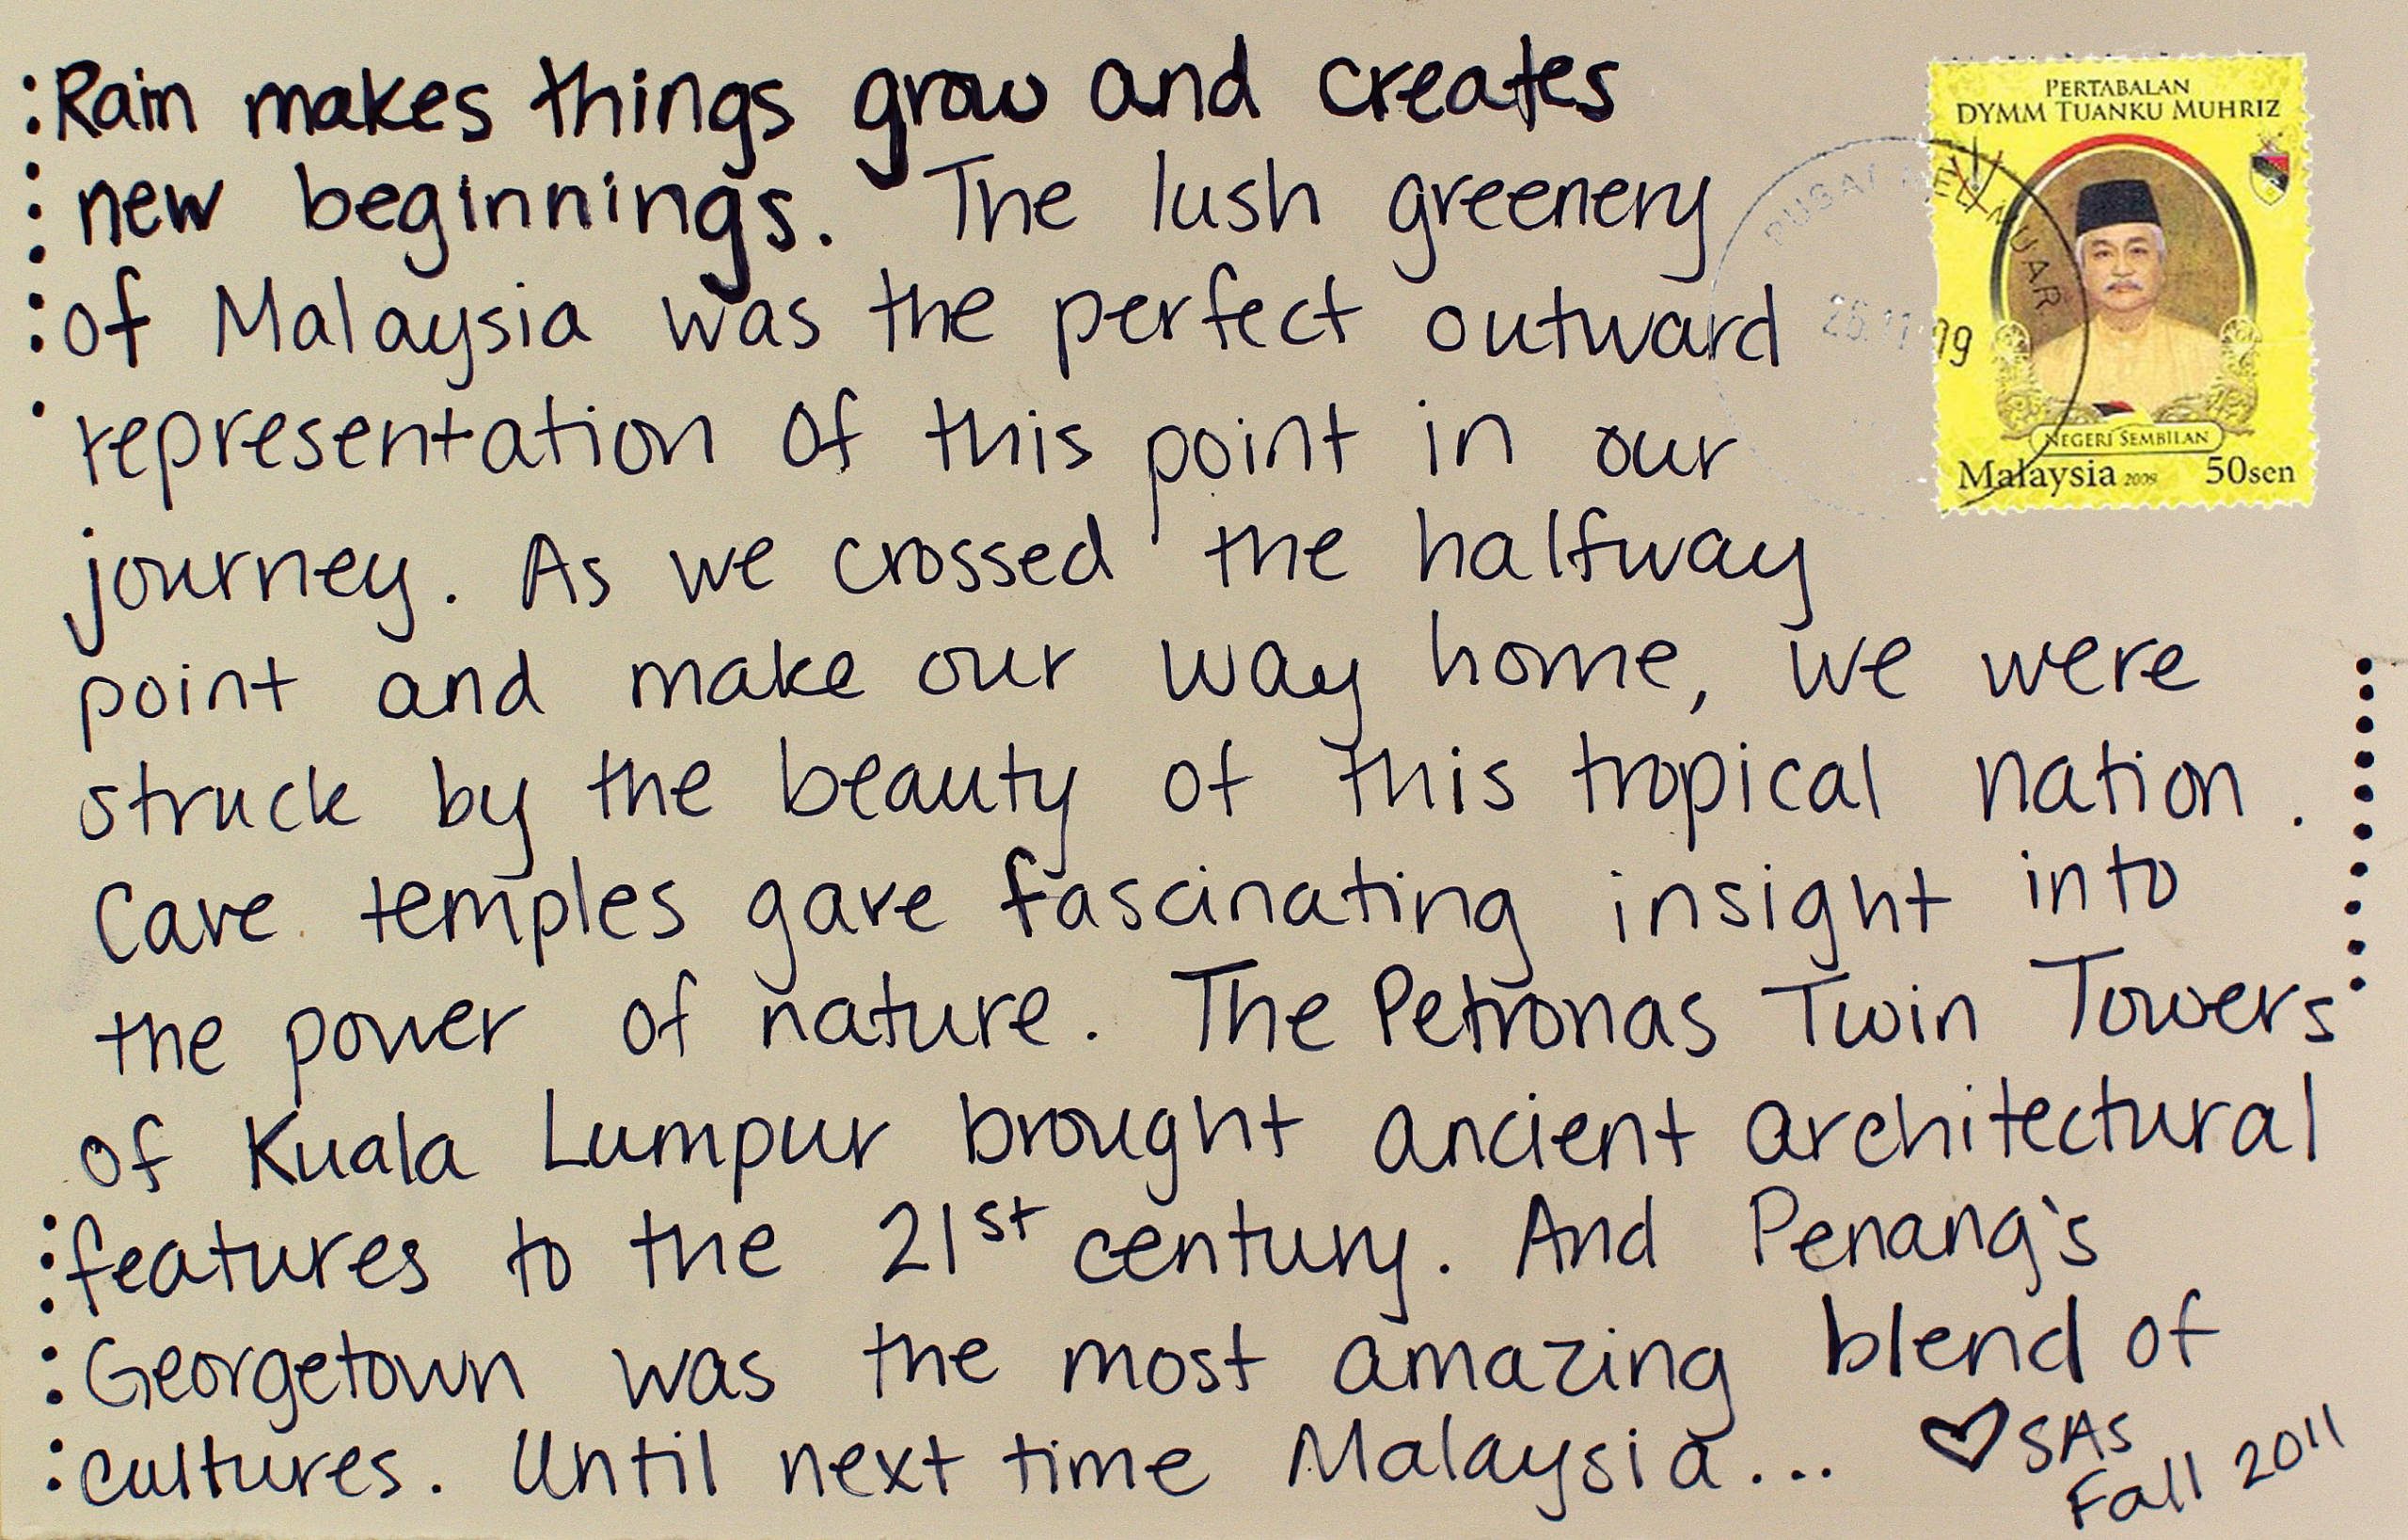 Rain makes things grow and creates
new beginnings. The lush greenery
of Malaysia was the perfect outward
representation of this point in our
journey. As we crossed the halfway
point and make our way home, we were
struck by the beauty of this tropical nation.
Cave temples gave fascinating insight into
the power of nature. The Petronas Twin Towers
of Kuala Lumpur brought ancient architectural
features to the 21st century. And Penang's
Georgetown was the most amazing blend of
cultures. Until next time Malaysia... ♡ SAS
Fall 2011
PERTABALAN
DYMM TUANKU MUHRIZ
NEGERI SEMBILAN
Malaysia 2009 50sen
MUAR